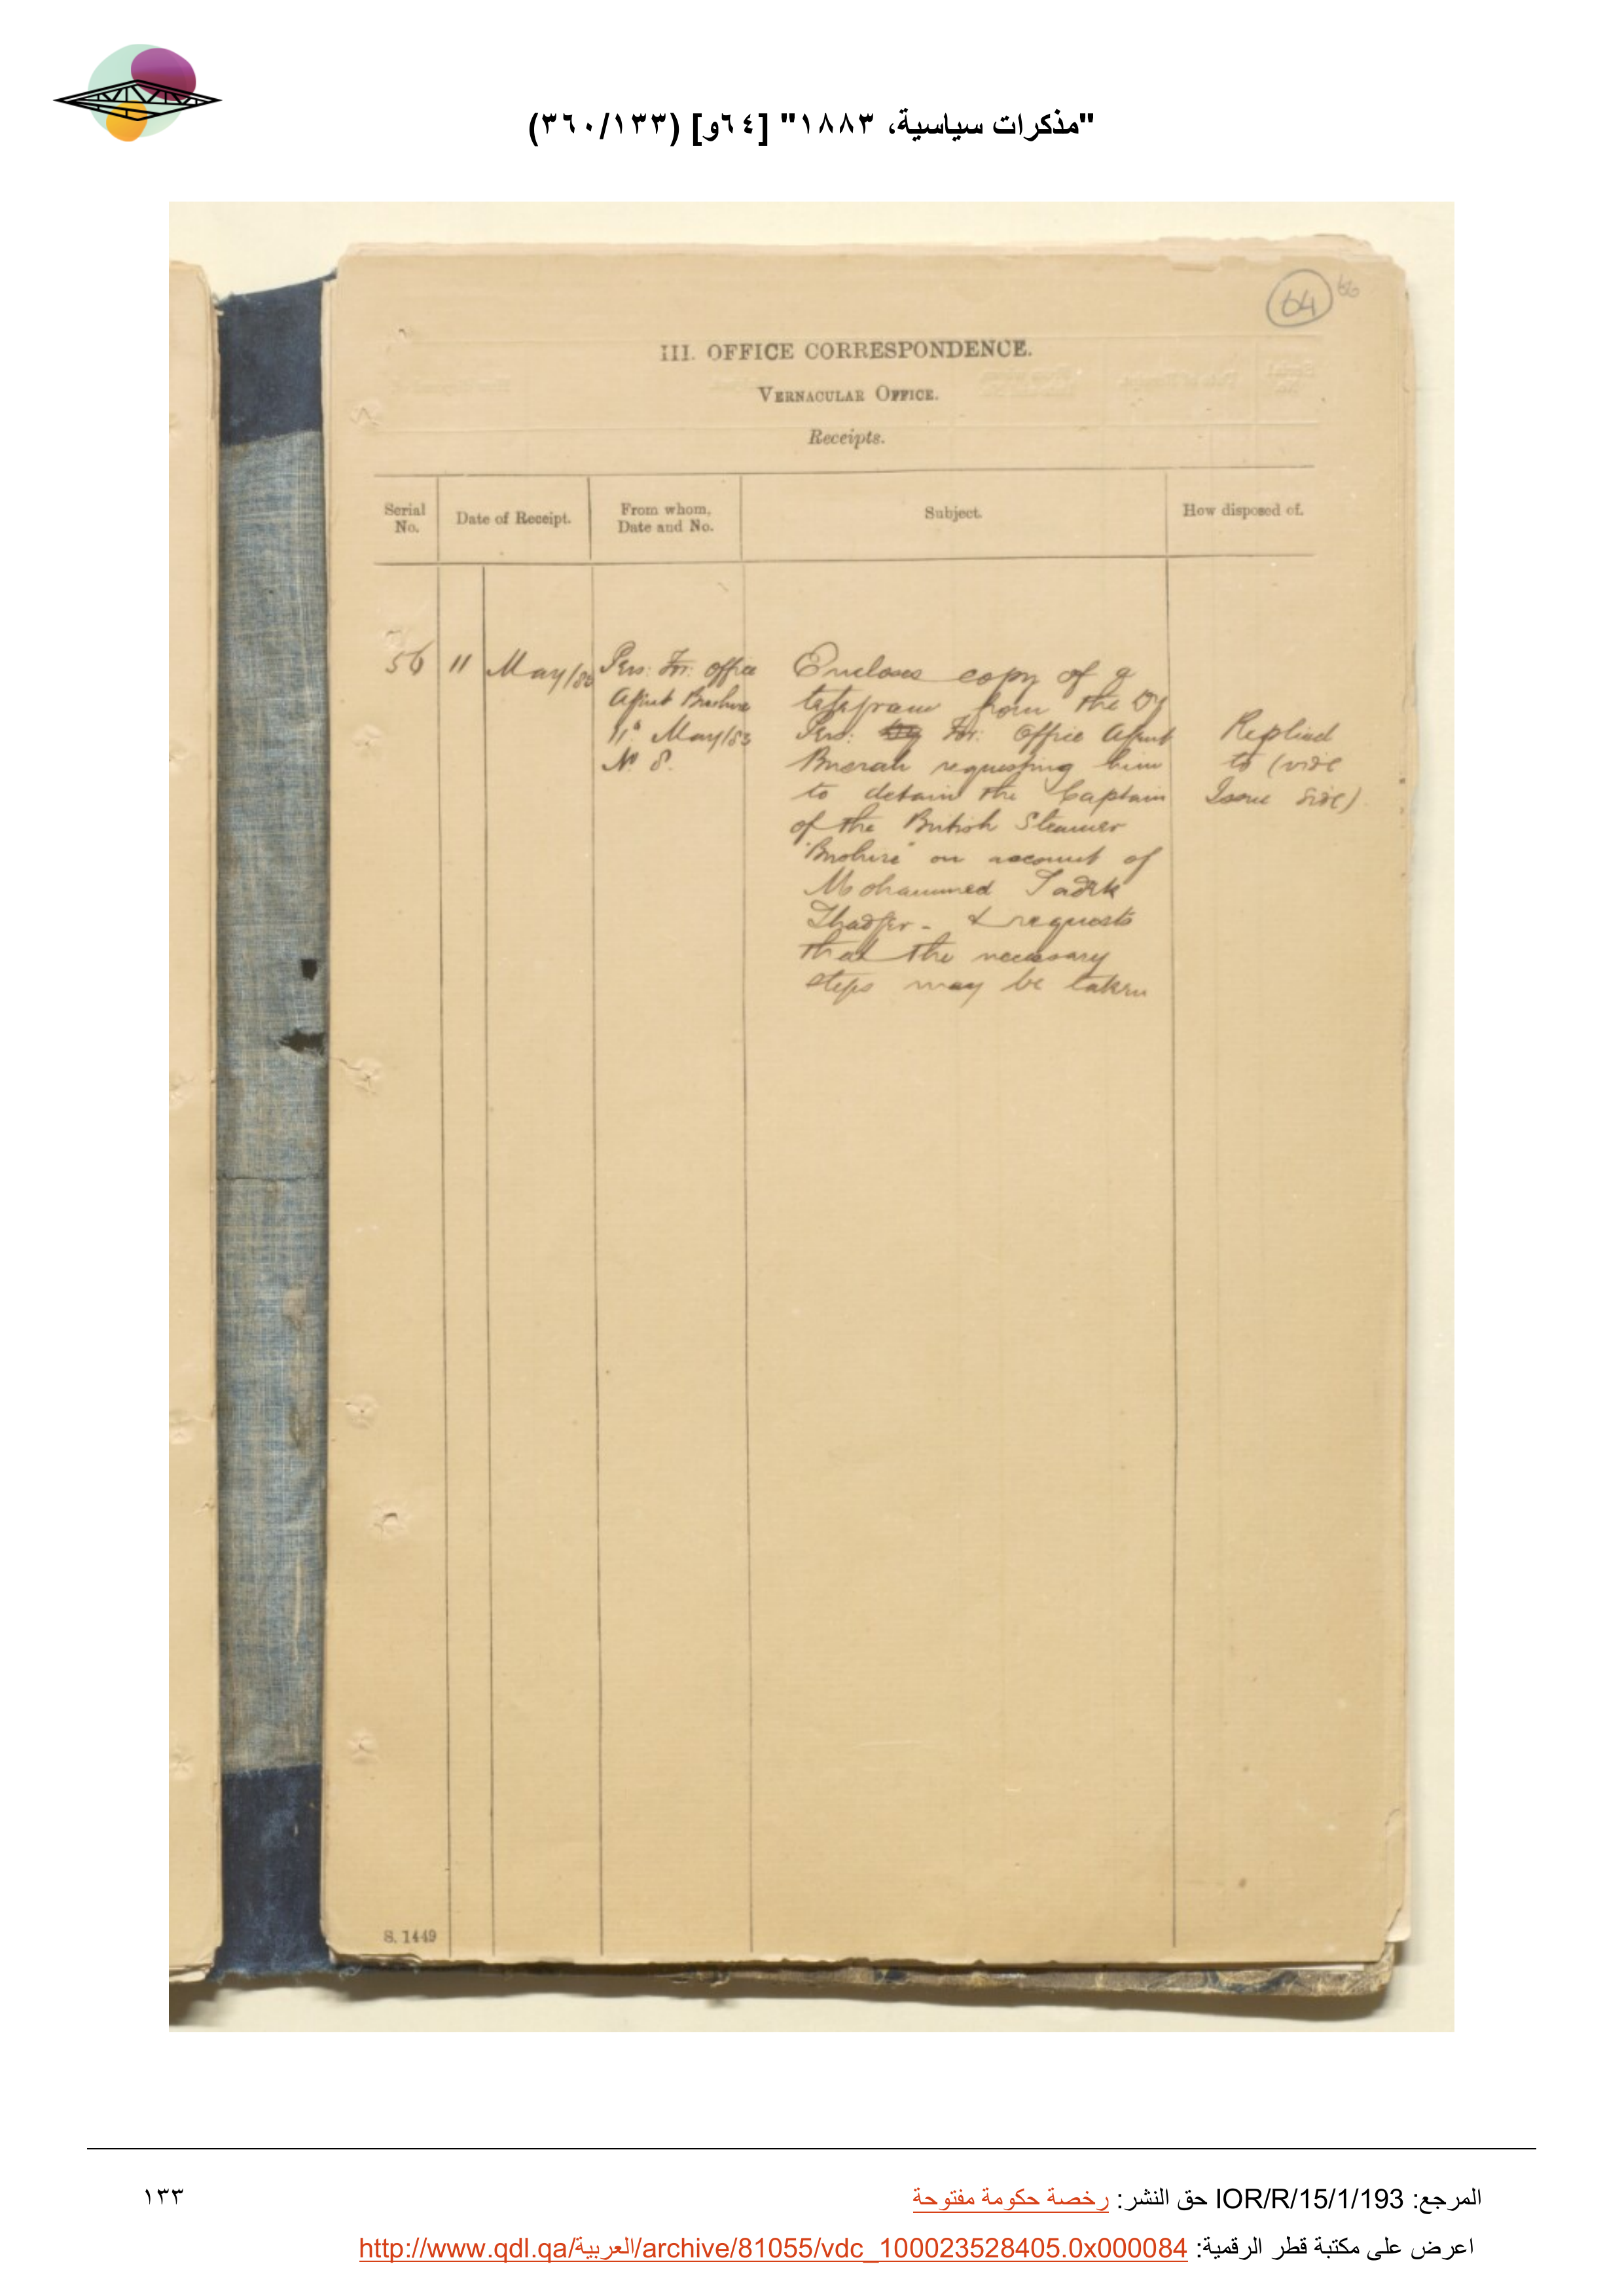 "مذكرات سياسية، ١٨٨٣" [٦٤و] (٣٦٠/١٣٣)
64
66
III. OFFICE CORRESPONDENCE.
VERNACULAR OFFICE.
Receipts.
Serial No.
Date of Receipt.
From whom, Date and No.
Subject.
How disposed of.
56
11
May/83
Pers: For: Office
Agent Bushire
11th May/83
No 8.
Encloses copy of a
telegram from the Dy
Pers: For: Office Agent
Busrah requesting him
to detain the Captain
of the British Steamer
"Bushire" on account of
Mohammed Sadek
& requests
that the necessary
steps may be taken
Replied
to (vide
Issue side)
S. 1449
المرجع: IOR/R/15/1/193 حق النشر: رخصة حكومة مفتوحة
١٣٣
اعرض على مكتبة قطر الرقمية: http://www.qdl.qa/العربية/archive/81055/vdc_100023528405.0x000084